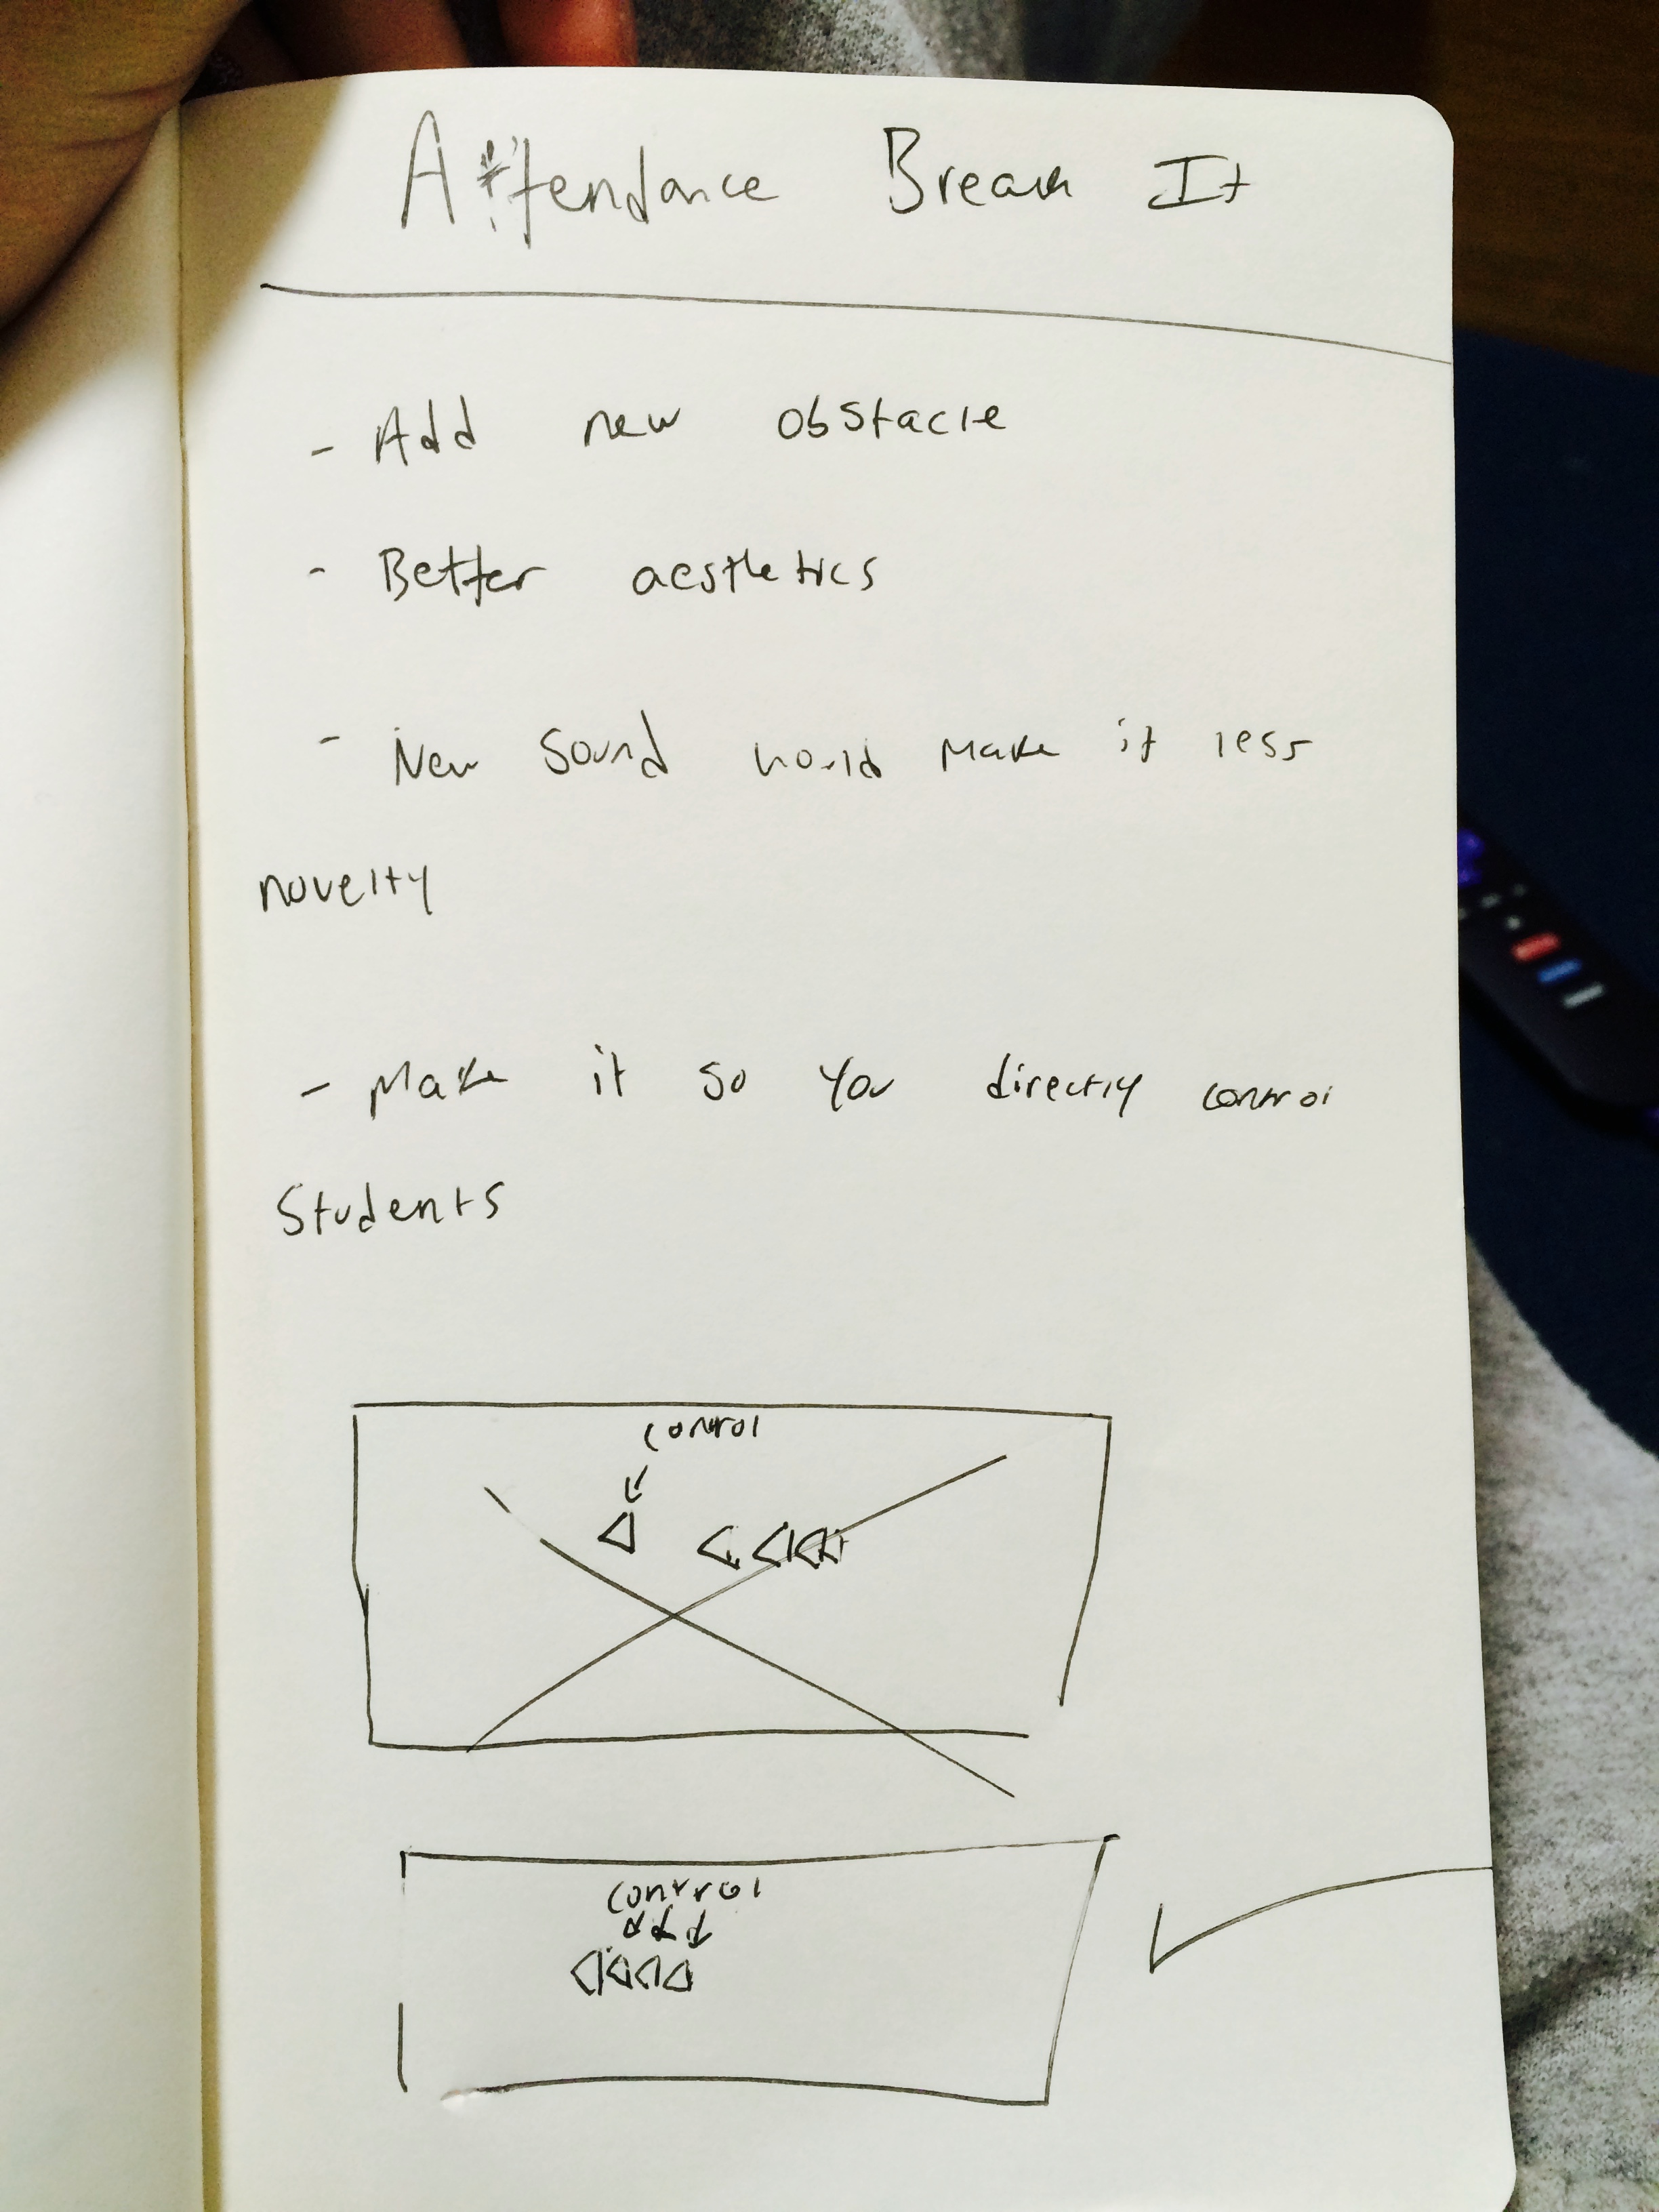 Attendance Break It
- Add new obstacle
- Better aesthetics
- New sound would make it less
novelty
- Make it so you directly control
students
control
control